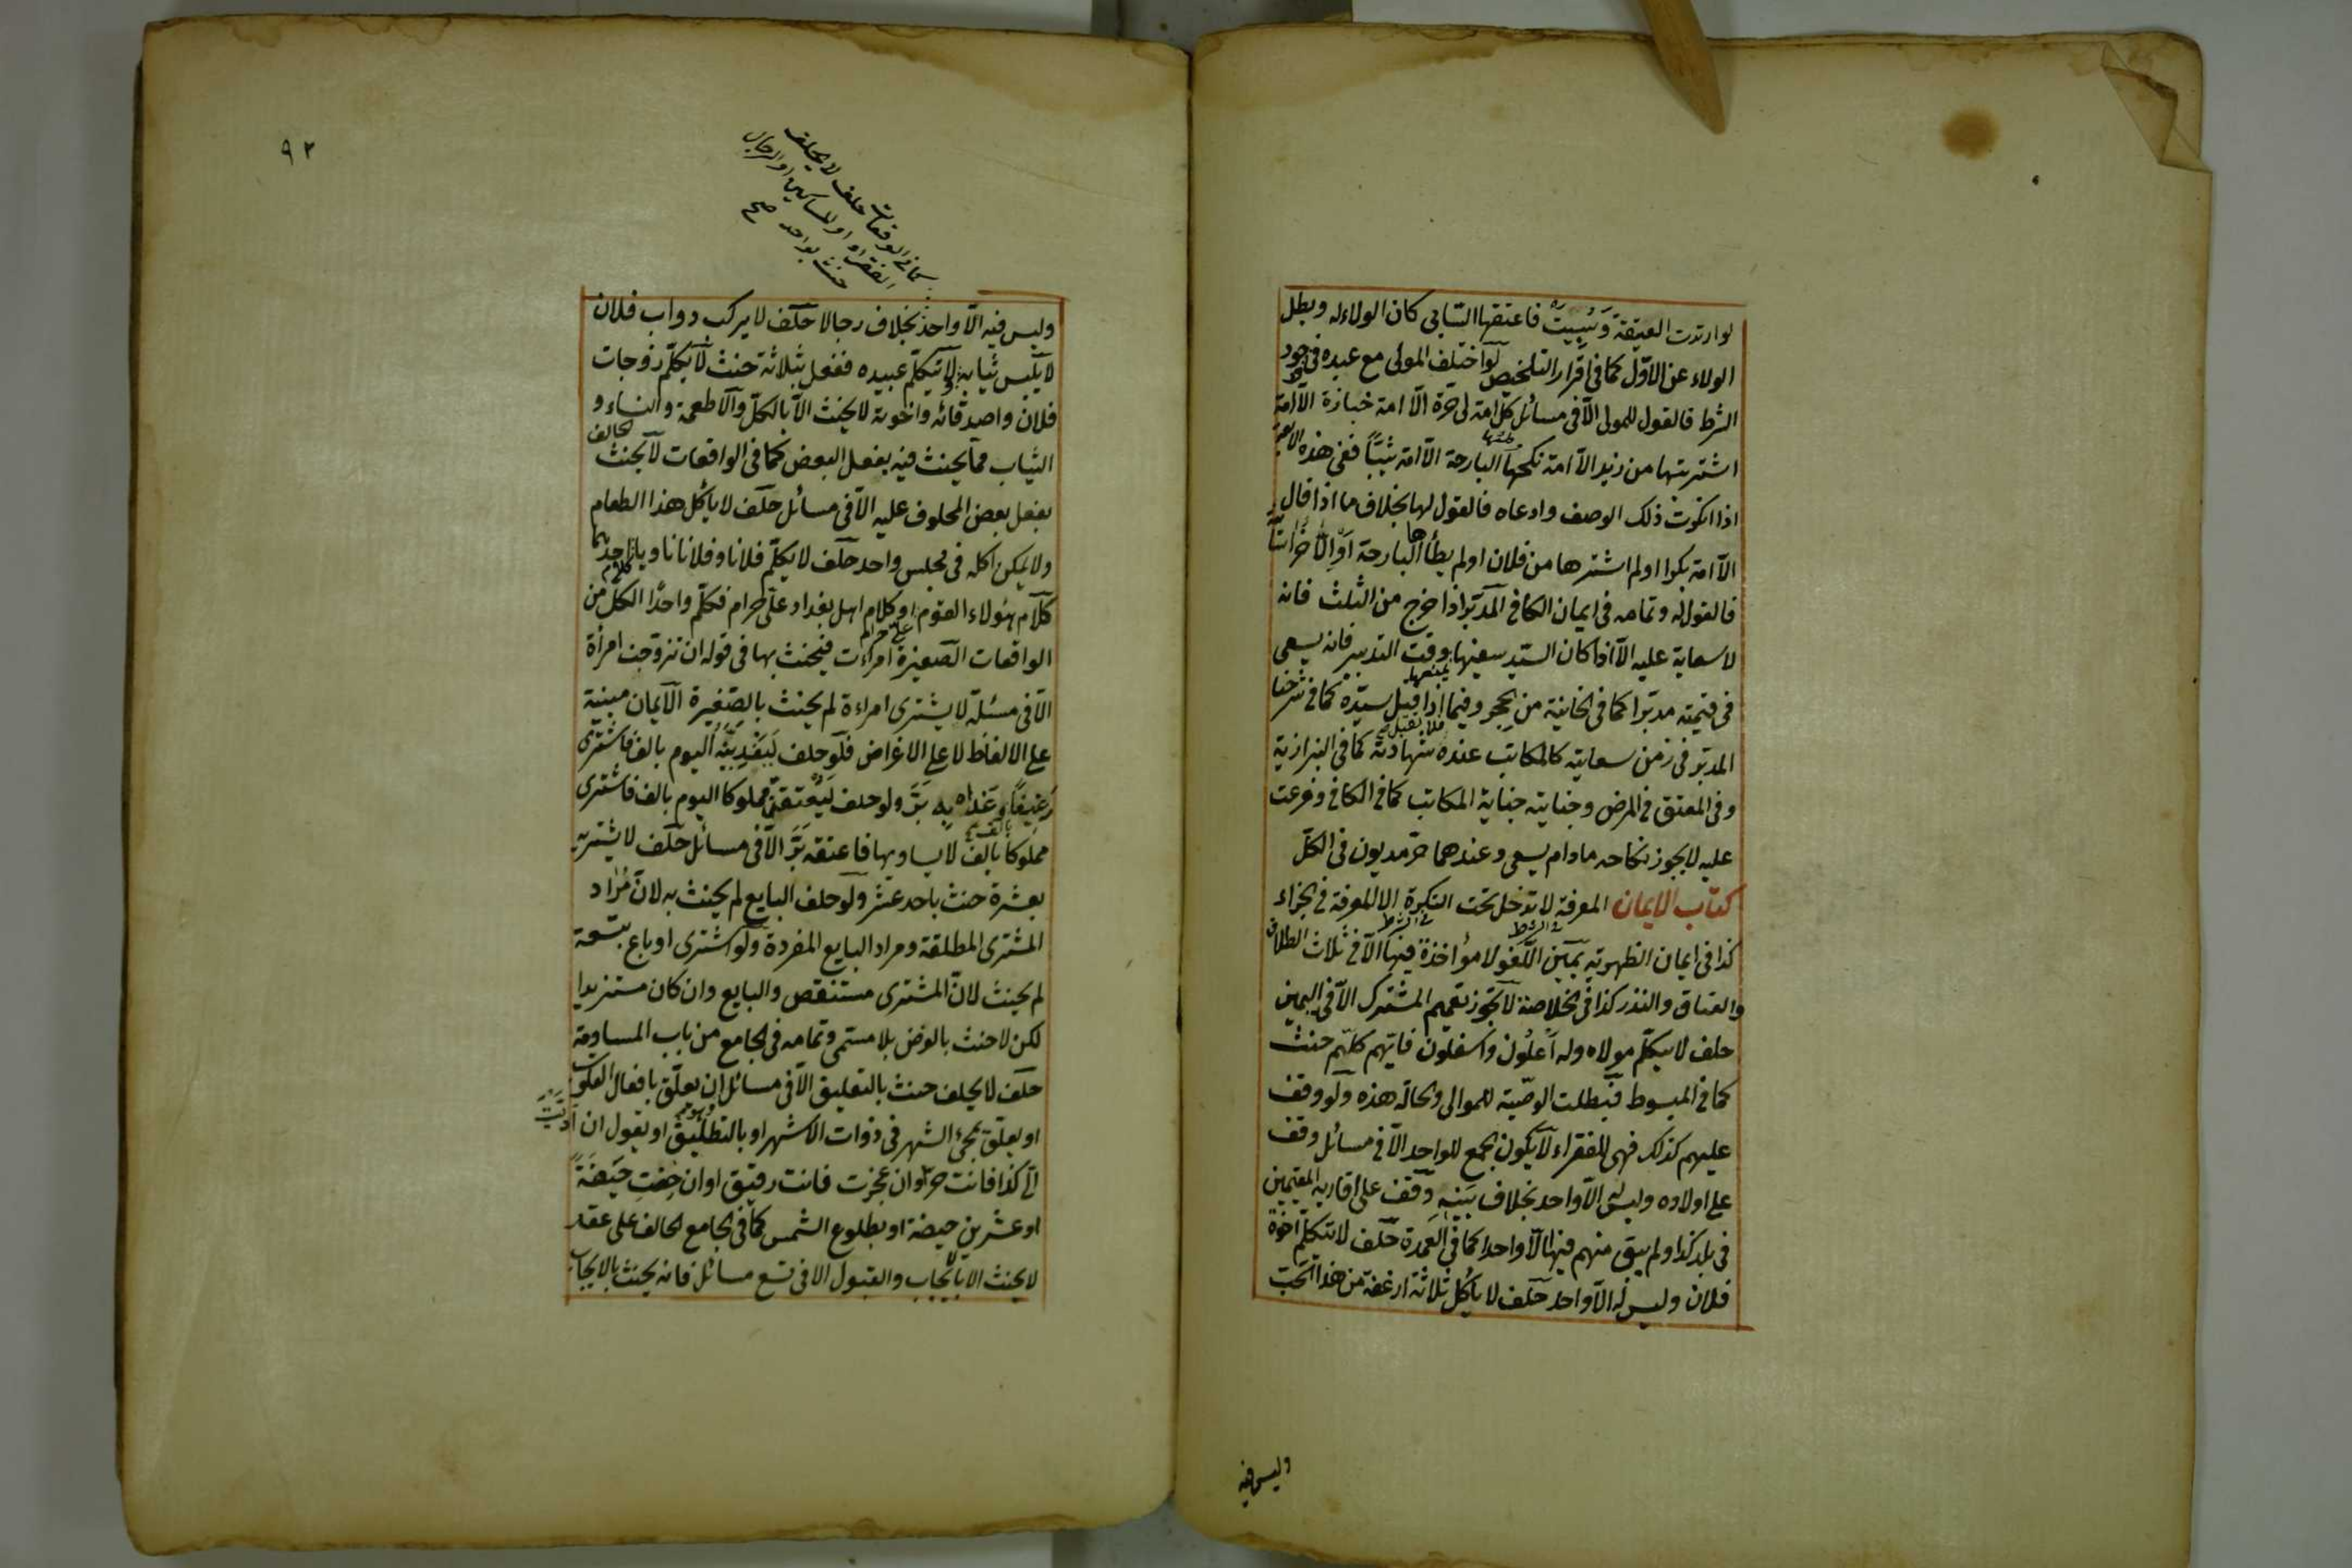 لو ارتدت العتيقة وَسُبِيَتْ فاعتقها السابى كان الولاء له وبطل
الولاء عن الاوّل كما فى اقرار التلخيص لو اختلف المولى مع عبده فى وجود
الشرط فالقول للمولى الّا فى مسائل كل امة لى حرة الّا امة خبازة الّا امة
اشتريتها من زيد الّا امة نكحتها البارحة الّا امة ثيّبًا ففى هذه
اذا انكرت ذلك الوصف وادعاه فالقول لها بخلاف ما اذا قال
الّا امة بكرا او لم اشترها من فلان او لم يطأها البارحة او الّا خراسانية
فالقول له وتمامه فى ايمان الكافى المدبّر اذا خرج من الثلث فانه
لا سعاية عليه الّا اذا كان السيّد سفيها وقت التدبير فانه يسعى
فى قيمته مدبّرا كما فى الخانية من الحجر وفيما اذا قتل سيّده كما فى شرحنا
المدبّر فى زمن سعايته كالمكاتب عنده فلا تقبل شهادته كما فى البزازية
وفى المعتق فى المرض وجنايته جناية المكاتب كما فى الكافى وفرعت
عليه لا يجوز نكاحه مادام يسعى وعندهما حرّ مديون فى الكلّ
كتاب الايمان المعرفة لا تدخل تحت النكرة الا المعرفة فى الجزاء
فى الشرط
كذا فى ايمان الظهيرية يمين اللغو لا مؤاخذة فيها الّا فى ثلاث الطلاق
والعتاق والنذر كذا فى الخلاصة لا يجوز تعميم المشترك الّا فى اليمين
حلف لا يكلّم مولاه وله اعلون واسفلون فايّهم كلّم حنث
كما فى المبسوط فبطلت الوصيّة للموالى والحالة هذه ولو وقف
عليهم كذلك فهى للفقراء لا يكون الجمع للواحد الّا فى مسائل وقف
على اولاده وليس له الّا واحد بخلاف بَنيه وقف على اقاربه المقيمين
فى بلد كذا ولم يبق منهم فيها الّا واحدا كما فى العمدة حلف لا يتكلم اخوة
فلان وليس له الّا واحد حلف لا يأكل ثلاثة ارغفة من هذا الحب
وليس فيه
٩٢
كما فى الواقعات حلف لا يحلف
الفقراء او المساكين او الرجال
حنث بواحد صح
وليس فيه الّا واحد بخلاف رجالا حلف لا يركب دواب فلان
لا يلبس ثيابه لا يتكلّم عبيده ففعل بثلاثة حنث لا يكلّم زوجات
فلان واصدقائه واخوته لا يحنث الّا بالكلّ والاطعمة والنساء و
الثياب مما يحنث فيه بفعل البعض كما فى الواقعات لا يحنث الحالف
بفعل بعض المحلوف عليه الّا فى مسائل حلف لا يأكل هذا الطعام
ولا يمكن اكله فى مجلس واحد حلف لا يكلّم فلانا وفلانا ناويا احدهما
كلام هؤلاء القوم او كلام اهل بغداد علىّ حرام فكلّم واحدًا الكل من
الواقعات الصغيرة امرأة فيحنث بها فى قوله ان تزوجت امرأة
الّا فى مسئلة لا يشترى امرأة لم يحنث بالصّغيرة الايمان مبنية
على الالفاظ لا على الاغراض فلو حلف لَيُغَدِّيَنَّه اليوم بالف فاشترى
رغيفًا وغدّاه به بَرَّ ولو حلف ليعتقنّ مملوكا اليوم بالف فاشترى
مملوكا بالف لا يساويها فاعتقه برّ الّا فى مسائل حلف لا يشتريه
بعشرة حنث باحد عشر ولو حلف البايع لم يحنث به لان مُراد
المشترى المطلقة ومراد البايع المفردة ولو اشترى او باع بتسعة
لم يحنث لان المشترى مستنقص والبايع وان كان مستزيدا
لكن لا حنث بالغرض بلا مسمى وتمامه فى الجامع من باب المساومة
حلف لا يحلف حنث بالتعليق الّا فى مسائل ان يعلّق بافعال القلوب
او يعلّق بمجئ الشهر فى ذوات الاشهر او بالتطليق او يقول ان ادّيت
الىّ كذا فانت حر وان عجزت فانت رقيق او ان حِضْتِ حَيْضَةً
او عشرين حيضة او بطلوع الشمس كما فى الجامع الحالف على عقد
لا يحنث الا بالايجاب والقبول الا فى تسع مسائل فانه يحنث بالايجاب